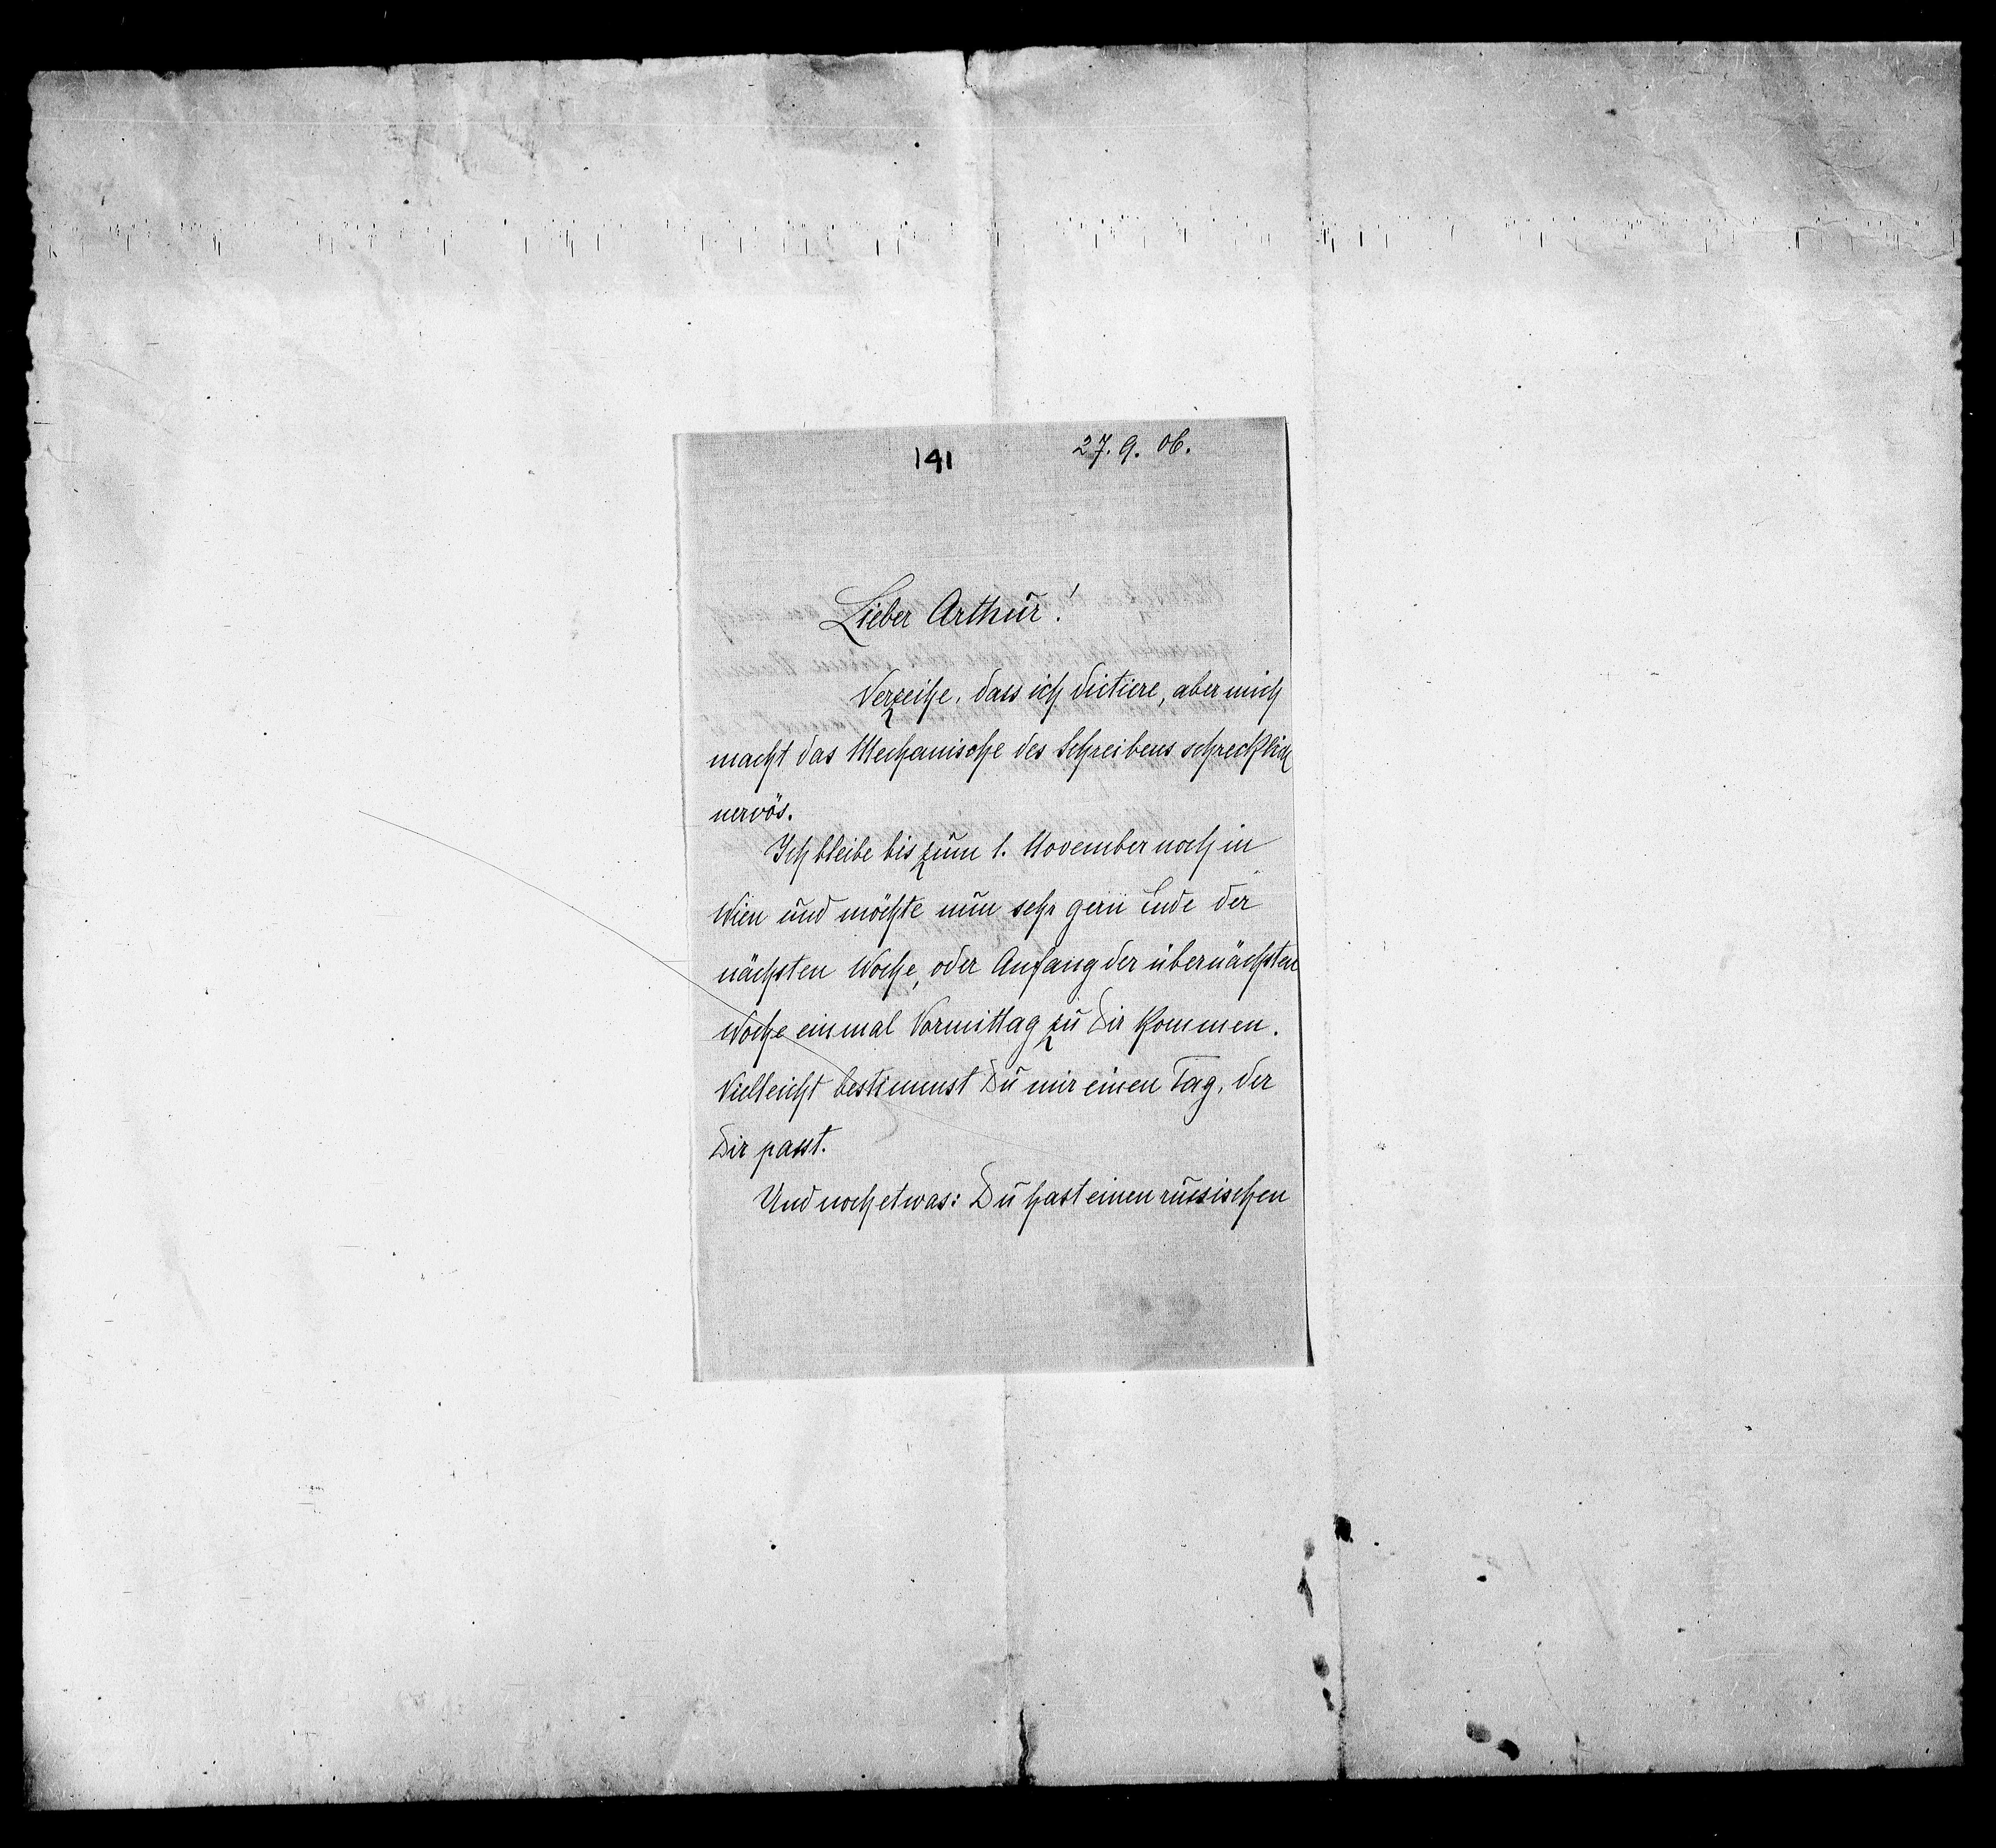 141 27. 9. 06.
Lieber Arthur!
Verzeihe, dass ich dictiere, aber mich
macht das Mechanische des Schreibens schrecklich
nervös.
Ich bleibe bis zum 1. November noch in
Wien und möchte nun sehr gern Ende der
nächsten Woche, oder Anfang der übernächsten
Woche einmal Vormittag zu Dir kommen.
Vielleicht bestimmst Du mir einen Tag, der
Dir passt.
Und noch etwas: Du hast einen russischen